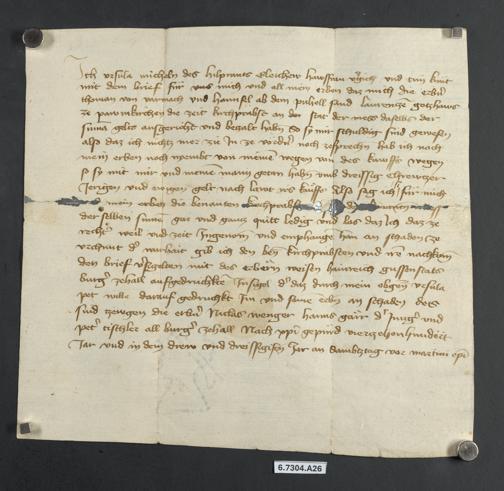 Ich ursula micheln des hilprants Eleicheu hawsfrau vergich und tun kunt
mit dem brief für uns mich und all mein erben daz mich die erbern
thoman von und hannsel ab dem puhell sand laurenzen gotzhaus
ze die zeit kirchprobst an der stat der mess daselbs der
suma gelts ausgericht und bezalt habn So sy mir schuldig sind gewesen
also daz ich nichtz mer zu In ze vordern noch zesprechen hab ich nach
mein erben noch nyembt von meinen wegen von des kauffs wegen
so sy mit mir und meinem mann getan habn umb dreissig Ehrewtzer
Jerigen und ewigen gelt nach laut irs kaufs Also sag ich für mich
mein erben die benanten kirchprobst
der selben summ gar und ganz quitt ledig und los daz ich daz ze
rechter weil und zeit Ingenom und emphangen han an schaden ze
urchunt der warhait gib ich den kirchprobsten und iren nachkom
den brief versigelten mit des erbern weisen hainreich
burger zehall aufgedruchktem Insigel der daz durch mein obgen ursula
pet willn darauf gedruckht Im und seinn erben an schaden des
sind zewgen die erbern Niklas wenger hanns der Jung und
peter tischler all burger zehall Nach xpi gepurd vierzehenhundert
Jar und in dem drew und dreissigisten Jar an Sambtztag vor martini epi
6.7304.A26